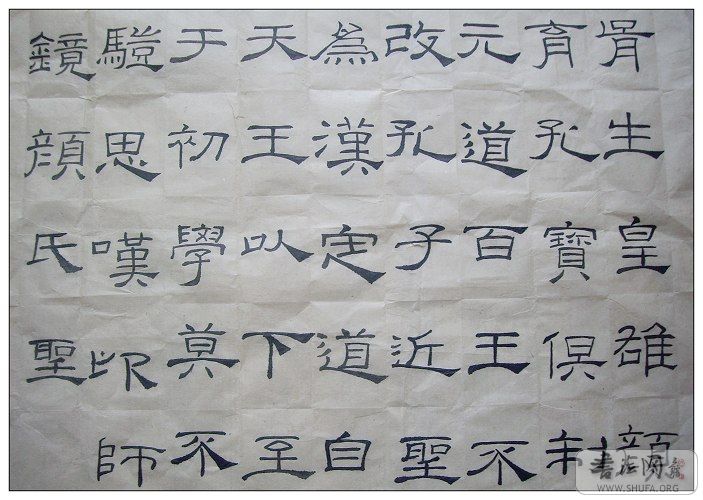 胥生皇雄顏
育孔寶俱制
元道百王不
改孔子近聖
為漢定道自
天王以下至
于初學莫不
思嘆卬師
鏡顏氏聖
WWW.SHUFA.ORG